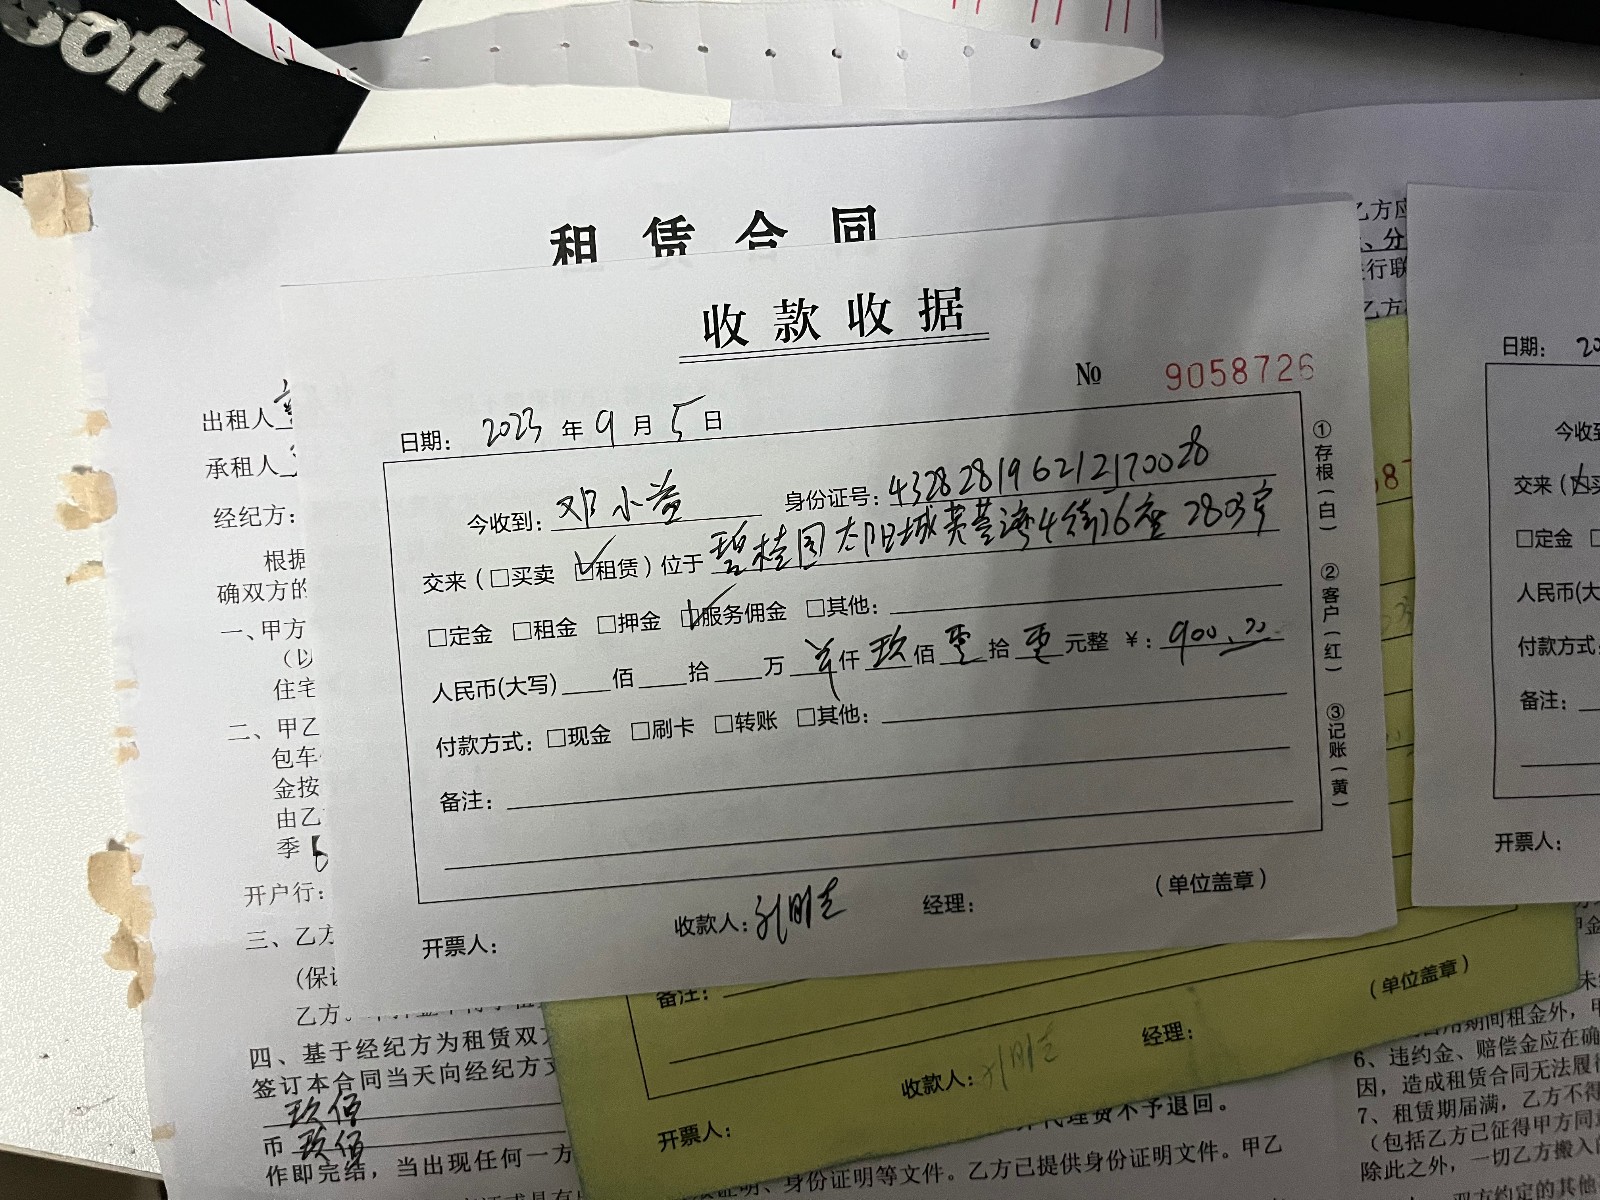 soft
租赁合同
收款收据
No 9058726
日期: 2023年9月5日
今收到: 邓小益 身份证号: 432828196212170028
交来(□买卖 ☑租赁)位于 碧桂园太阳城芙蓉湾4街16座2803字
□定金 □租金 □押金 ☑服务佣金 □其他:
人民币(大写)____佰____拾____万 羊仟玖佰零拾零元整 ¥: 900.00
付款方式: □现金 □刷卡 □转账 □其他:
备注:
开票人: 收款人: 经理: (单位盖章)
①存根(白) ②客户(红) ③记账(黄)
出租人
承租人
经纪方:
根据
确双方的
一、甲方
(以
住宅
二、甲乙
包车
金按
由乙
季
开户行:
三、乙方
(保证
乙方
四、基于经纪方为租赁双方
签订本合同当天向经纪方支
玖佰
币 玖佰
作即完结,当出现任何一方
代理费不予退回。
身份证明等文件。乙方已提供身份证明文件。甲乙
备注:
(单位盖章)
经理:
收款人:
开票人:
乙方应
、分
行联
乙方
日期: 20
今收到
交来(
□定金
人民币(大
付款方式:
备注:
开票人:
期间租金外,甲
6、违约金、赔偿金应在确
因,造成租赁合同无法履行
7、租赁期届满,乙方不得
(包括乙方已征得甲方同意
除此之外,一切乙方搬入的
双方约定的其他